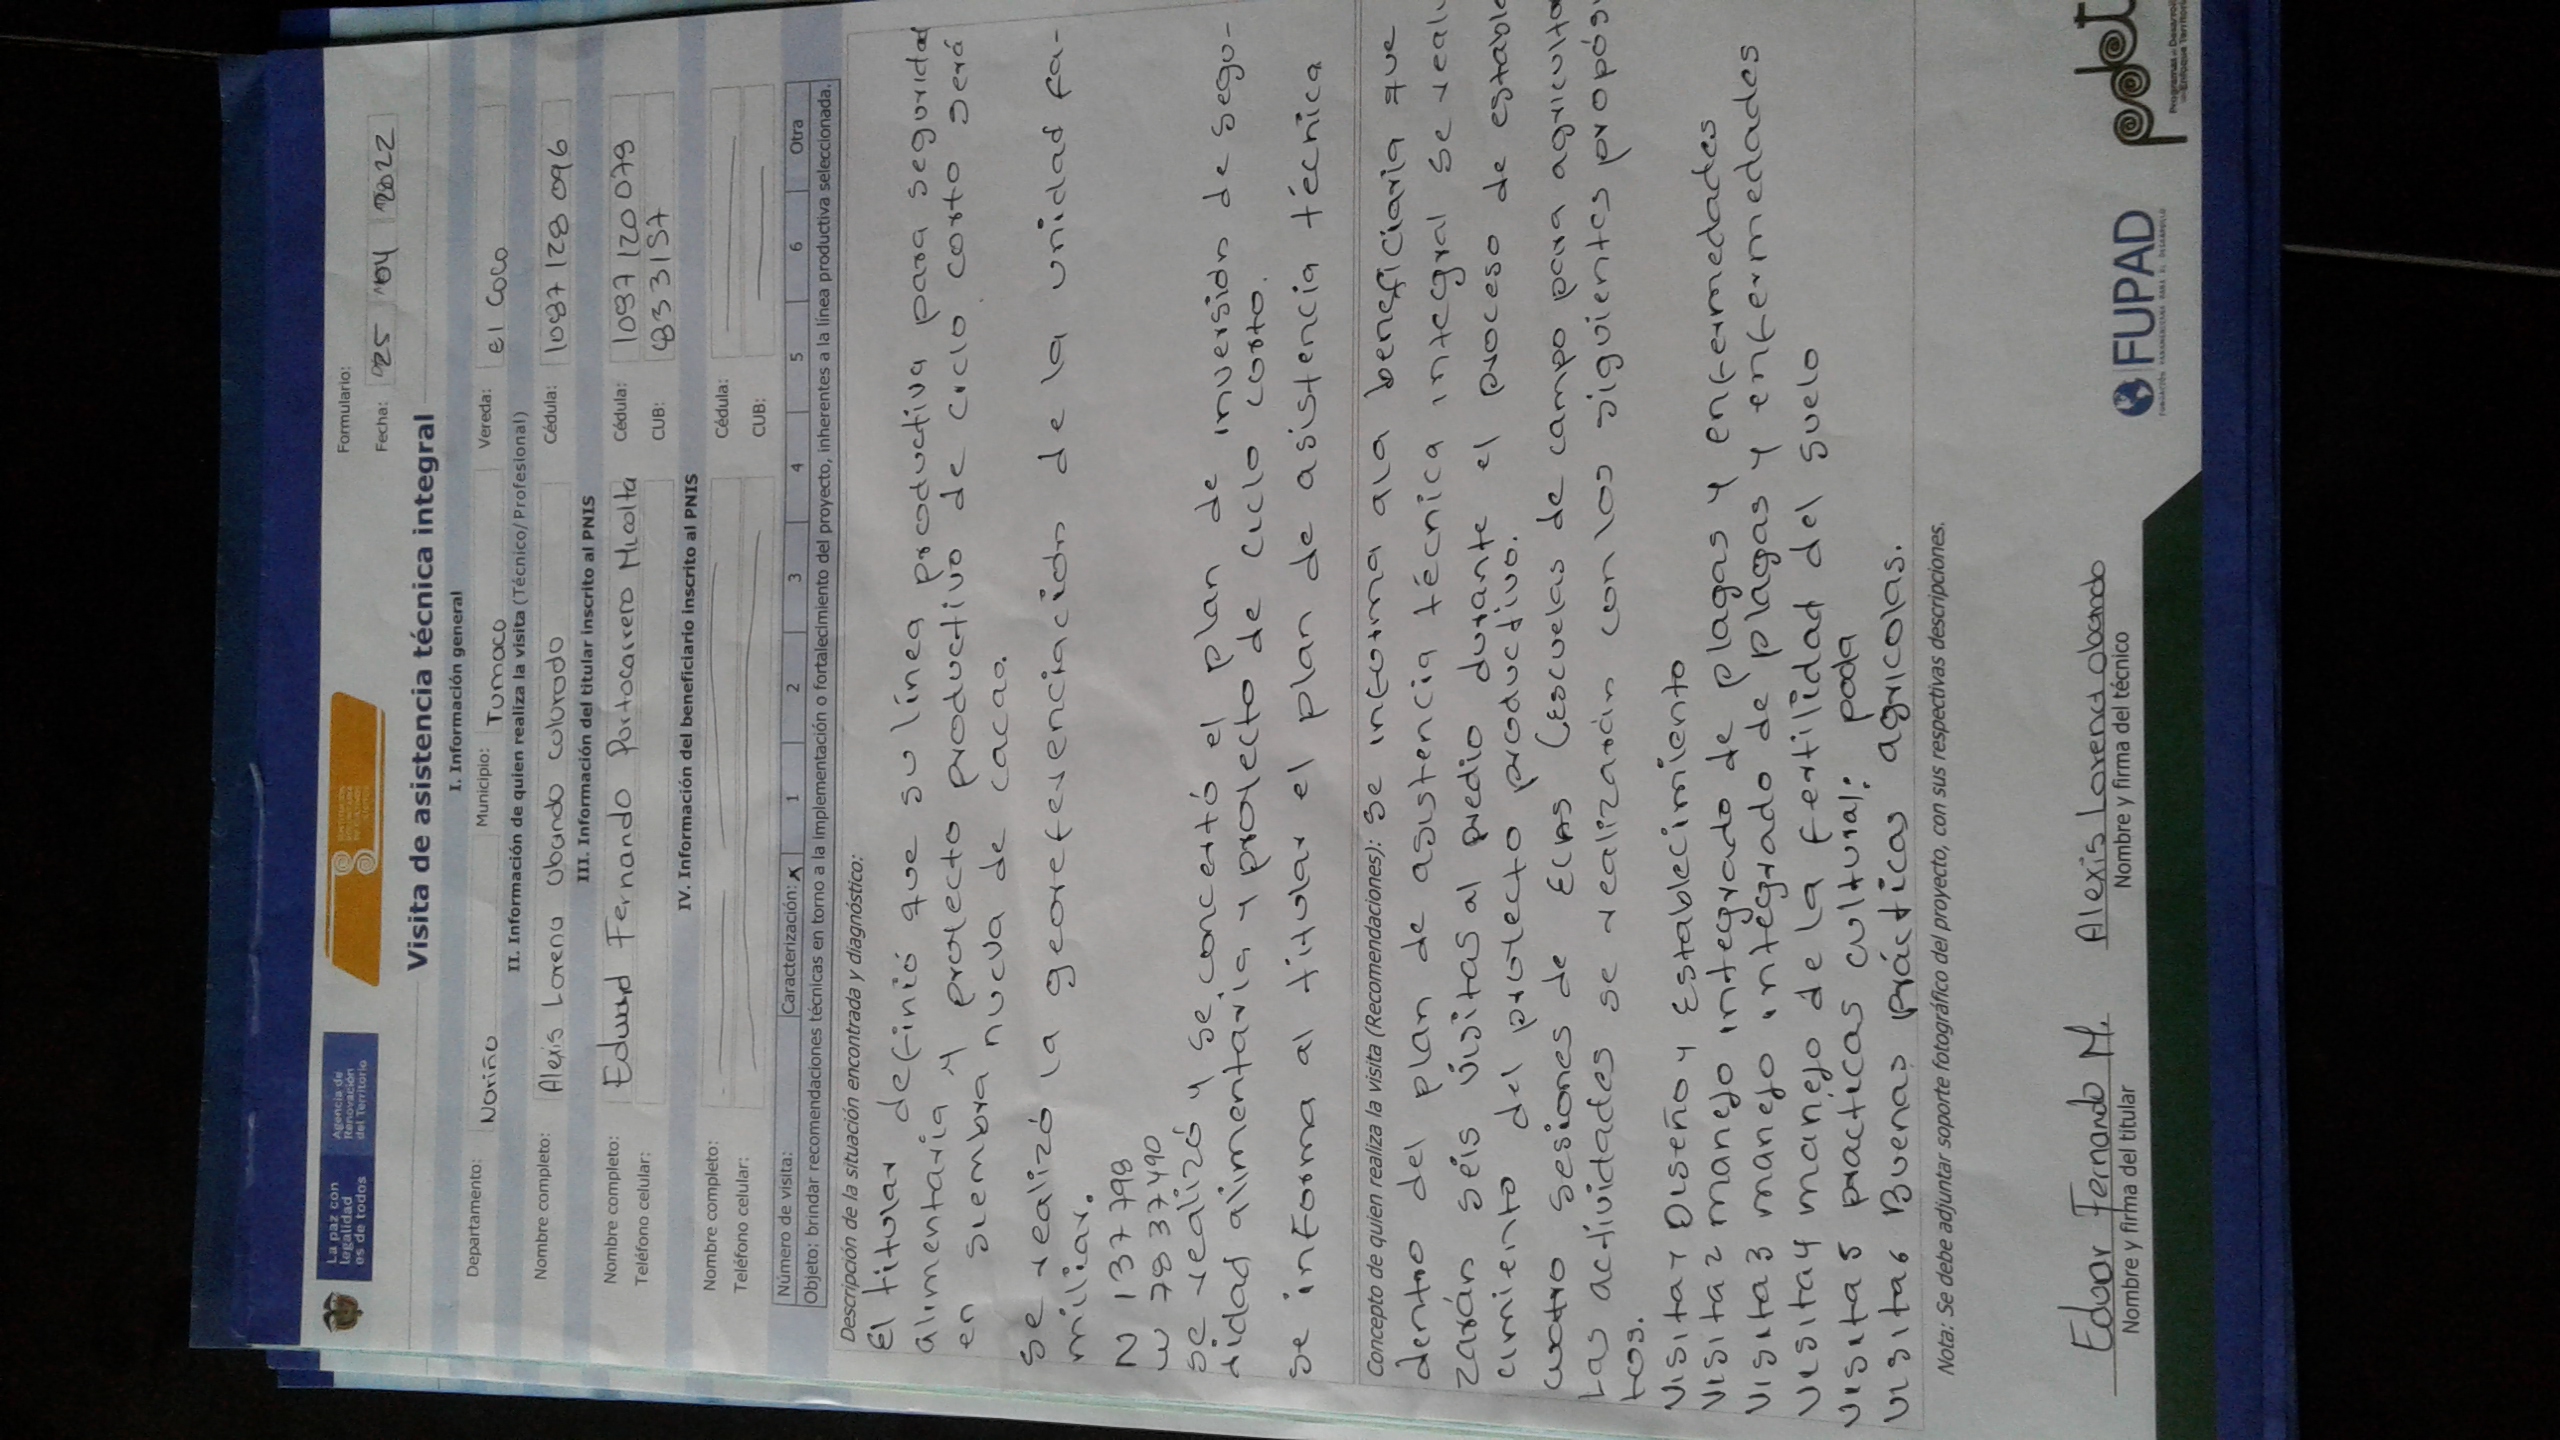 La paz con
legalidad
es de todos
Agencia de
Renovación
del Territorio
Formulario:
Fecha: 25 04 2022
Visita de asistencia técnica integral
I. Información general
Departamento: Nariño Municipio: Tumaco Vereda: el Coco
II. Información de quien realiza la visita (Técnico/Profesional)
Nombre completo: Alexis Lorena Obando Colorado Cédula: 1087 128 096
III. Información del titular inscrito al PNIS
Nombre completo: Eduard Fernando Portocarrero Micolta Cédula: 1087 120 079
Teléfono celular: CUB: 833157
IV. Información del beneficiario inscrito al PNIS
Nombre completo: Cédula:
Teléfono celular: CUB:
Número de visita: Caracterización: X 1 2 3 4 5 6 Otra
Objeto: brindar recomendaciones técnicas en torno a la implementación o fortalecimiento del proyecto, inherentes a la línea productiva seleccionada.
Descripción de la situación encontrada y diagnóstico:
El titular definió que su línea productiva para seguridad
alimentaria y prolecto productivo de ciclo corto será
en siembra nueva de cacao.
Se realizó la georeferenciación de la unidad fa-
miliar.
N 137 798
w 78 37 490
se realizó y se concertó el plan de inversión de segu-
ridad alimentaria y prolecto de ciclo corto.
se informa al titular el plan de asistencia técnica
Concepto de quien realiza la visita (Recomendaciones): se informa ala beneficiaria que
dentro del plan de asistencia técnica integral se reali
zarán seis visitas al predio durante el proceso de estable
cimiento del prolecto productivo.
cuatro sesiones de ECAS (escuelas de campo para agriculto
Las actividades se realizarán con los siguientes propósi
tos.
Visita 1 Diseño y Establecimiento
Visita 2 manejo integrado de plagas y enfermedades
Visita 3 manejo integrado de plagas y enfermedades
Visita 4 manejo de la fertilidad del suelo
Visita 5 practicas cultural: poda
Visita 6 Buenas prácticas agricolas.
Nota: Se debe adjuntar soporte fotográfico del proyecto, con sus respectivas descripciones.
Eduar Fernando M. Alexis Lorena obando
Nombre y firma del titular Nombre y firma del técnico
FUPAD
pdet